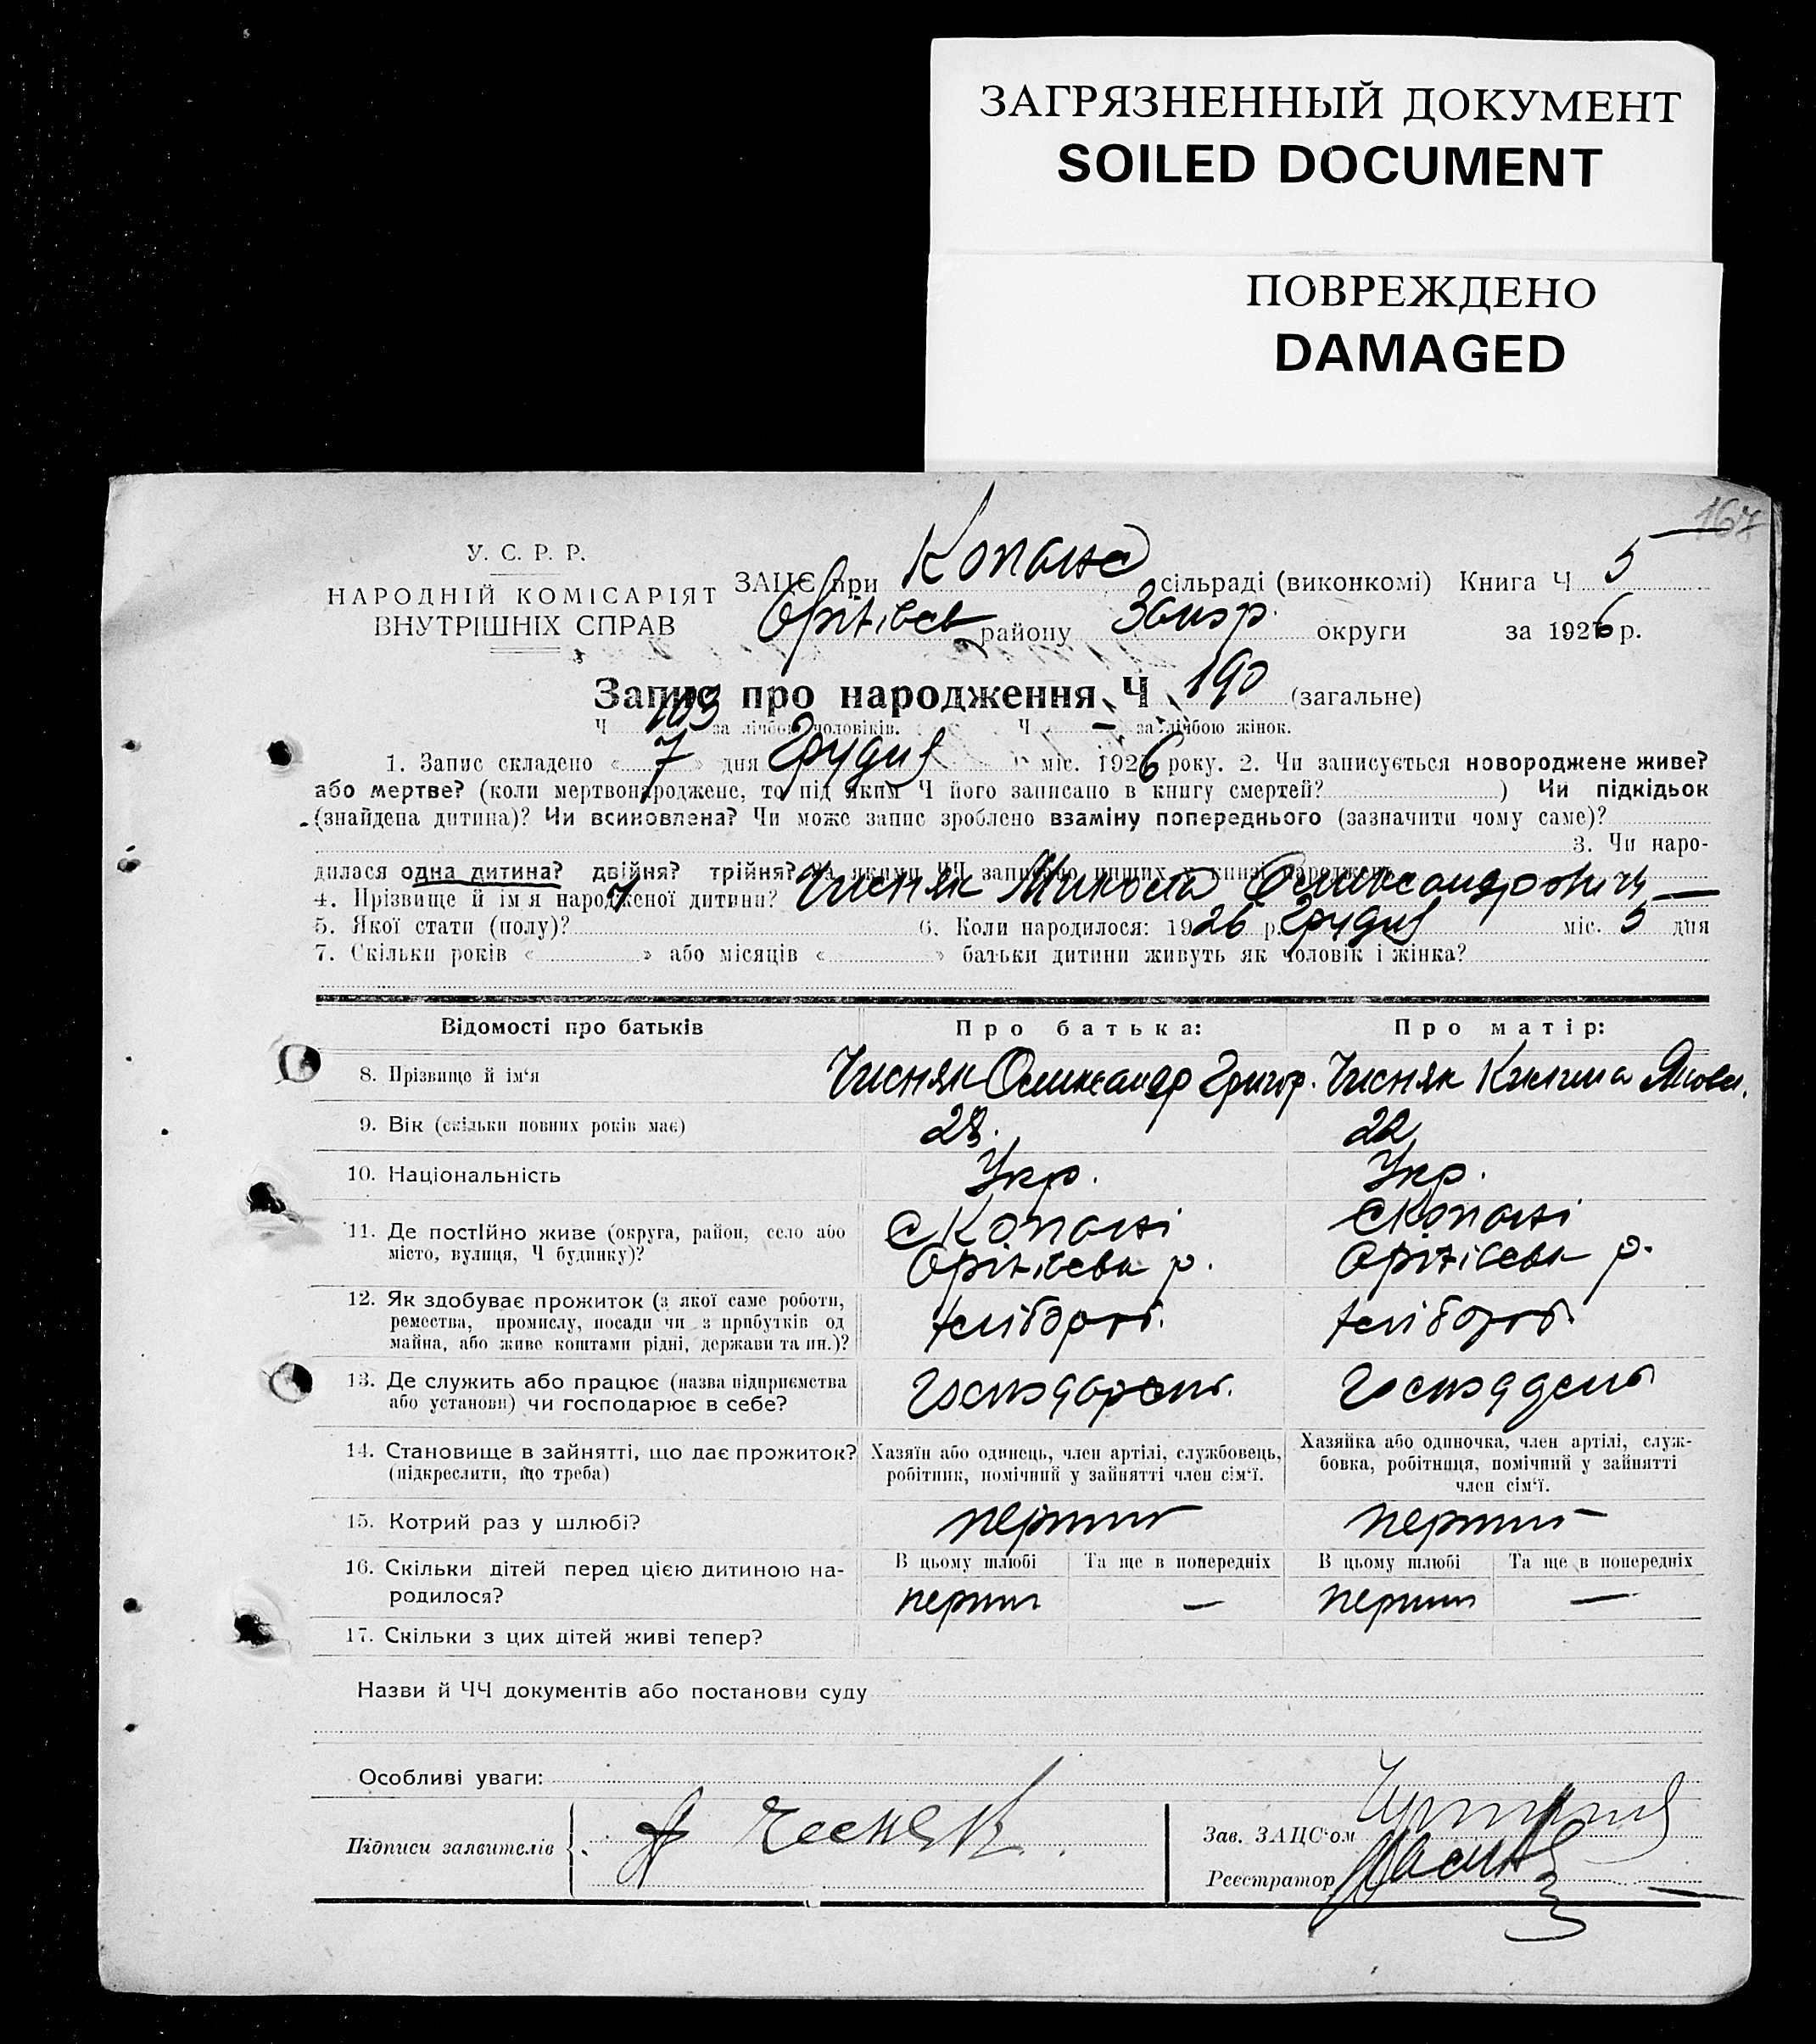 ЗАГРЯЗНЕННЫЙ ДОКУМЕНТ
SOILED DOCUMENT
ПОВРЕЖДЕНО
DAMAGED
167
У. С. Р. Р.
НАРОДНІЙ КОМІСАРІЯТ
ВНУТРІШНІХ СПРАВ
ЗАЦС при Копане сільраді (виконкомі) Книга Ч 5
Оріхівск району Запор. округи за 1926 р.
Запис про народження Ч 190 (загальне)
Ч 103 за лічбою чоловіків. Ч — за лічбою жінок.
1. Запис складено « 7 » дня Грудня міс. 1926 року. 2. Чи записується новороджене живе?
або мертве? (коли мертвонароджене, то під яким Ч його записано в книгу смертей? ) Чи підкідьок
(знайдена дитина)? Чи всиновлена? Чи може запис зроблено взаміну попереднього (зазначити чому саме)?
3. Чи наро-
дилася одна дитина? двійня? трійня? За якими ЧЧ записано инших у книзі народжень
4. Прізвище й ім'я народженої дитини? Чисняк Микола Олександрович —
5. Якої стати (полу)? Ч 6. Коли народилося: 1926 р. Грудня міс. 5 дня
7. Скільки років « » або місяців « » батьки дитини живуть як чоловік і жінка?
Відомості про батьків Про батька: Про матір:
8. Прізвище й ім'я Чисняк Олександр Григор. Чисняк Килина Яковл.
9. Вік (скільки повних років має) 28. 22
10. Національність Укр. Укр.
11. Де постійно живе (округа, район, село або
місто, вулиця, Ч будинку)?
с Копані
Оріхівськ р.
с Копані
Оріхівськ р.
12. Як здобуває прожиток (з якої саме роботи,
ремества, промислу, посади чи з прибутків од
майна, або живе коштами рідні, держави та ин.)?
хлібороб. хлібороб
13. Де служить або працює (назва підприємства
або установи) чи господарює в себе?
14. Становище в зайнятті, що дає прожиток?
(підкреслити, що треба)
Хазяїн або одинець, член артілі, службовець,
робітник, помічний у зайнятті член сім'ї.
Хазяйка або одиночка, член артілі, служ-
бовка, робітниця, помічний у зайнятті
член сім'ї.
15. Котрий раз у шлюбі? перший перший
16. Скільки дітей перед цією дитиною на-
родилося?
В цьому шлюбі Та ще в попередніх В цьому шлюбі Та ще в попередніх
перши — перши —
17. Скільки з цих дітей живі тепер?
Назви й ЧЧ документів або постанови суду
Особливі уваги:
Підписи заявителів А Чесняк
Зав. ЗАЦС'ом
Реєстратор